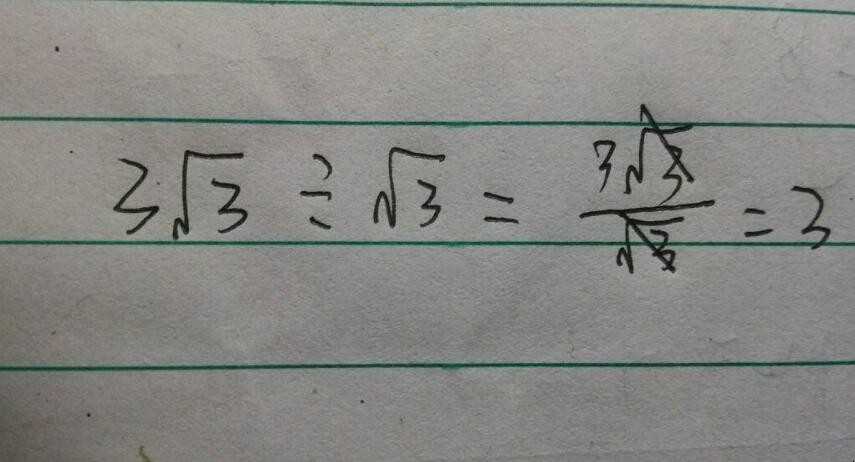 3√3 ÷ √3 = 3√3/√3 = 3